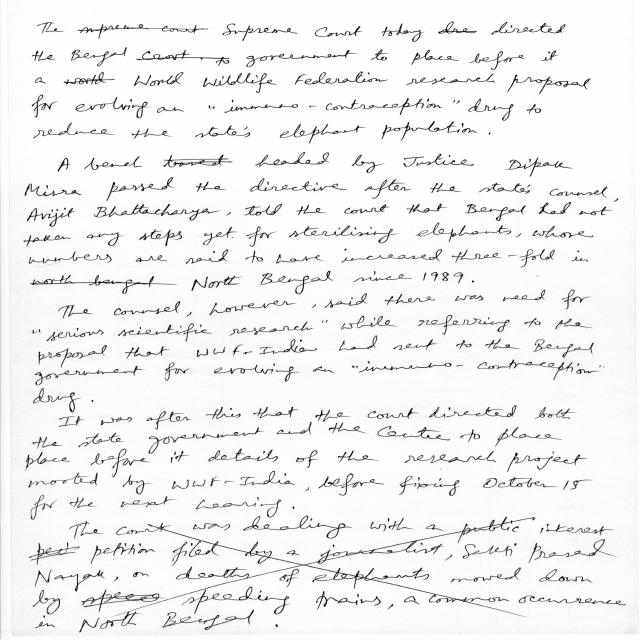 The supreme court Supreme Court today dre directed
the Bengal Court. to government to place before it
a world World Wildlife Federation research proposal
for evolving an "immuno-contraception" drug to
reduce the state's elephant population.
A bench based headed by Justice Dipak
Misra passed the directive after the state's counsel,
Avijit Bhattacharya, told the court that Bengal had not
taken any steps yet for sterilising elephants, whose
numbers are said to have increased three-fold in
north bengal North Bengal since 1989.
The counsel, however, said there was need for
"serious scientific research" while referring to the
proposal that WWF-India had sent to the Bengal
government for evolving an "immuno-contraception"
drug.
It was after this that the court directed both
the state government and the Centre to place
place before it details of the research project
mooted by WWF-India, before fixing October 15
for the next hearing.
The court was dealing with a public interest
peti petition filed by a journalist, Sakti Prasad
Nayak, on deaths of elephants mowed down
by speed speeding trains, a common occurrence
in North Bengal.